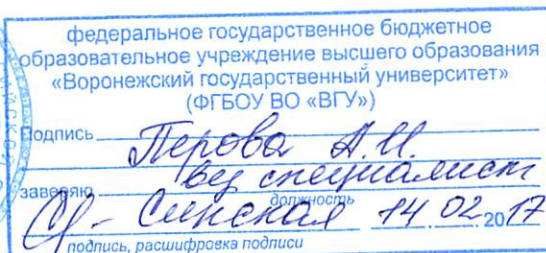 федеральное государственное бюджетное
образовательное учреждение высшего образования
«Воронежский государственный университет»
(ФГБОУ ВО «ВГУ»)
Подпись Перова А.И.
вед специалист
заверяю должность
Синская 14 02 2017
подпись, расшифровка подписи